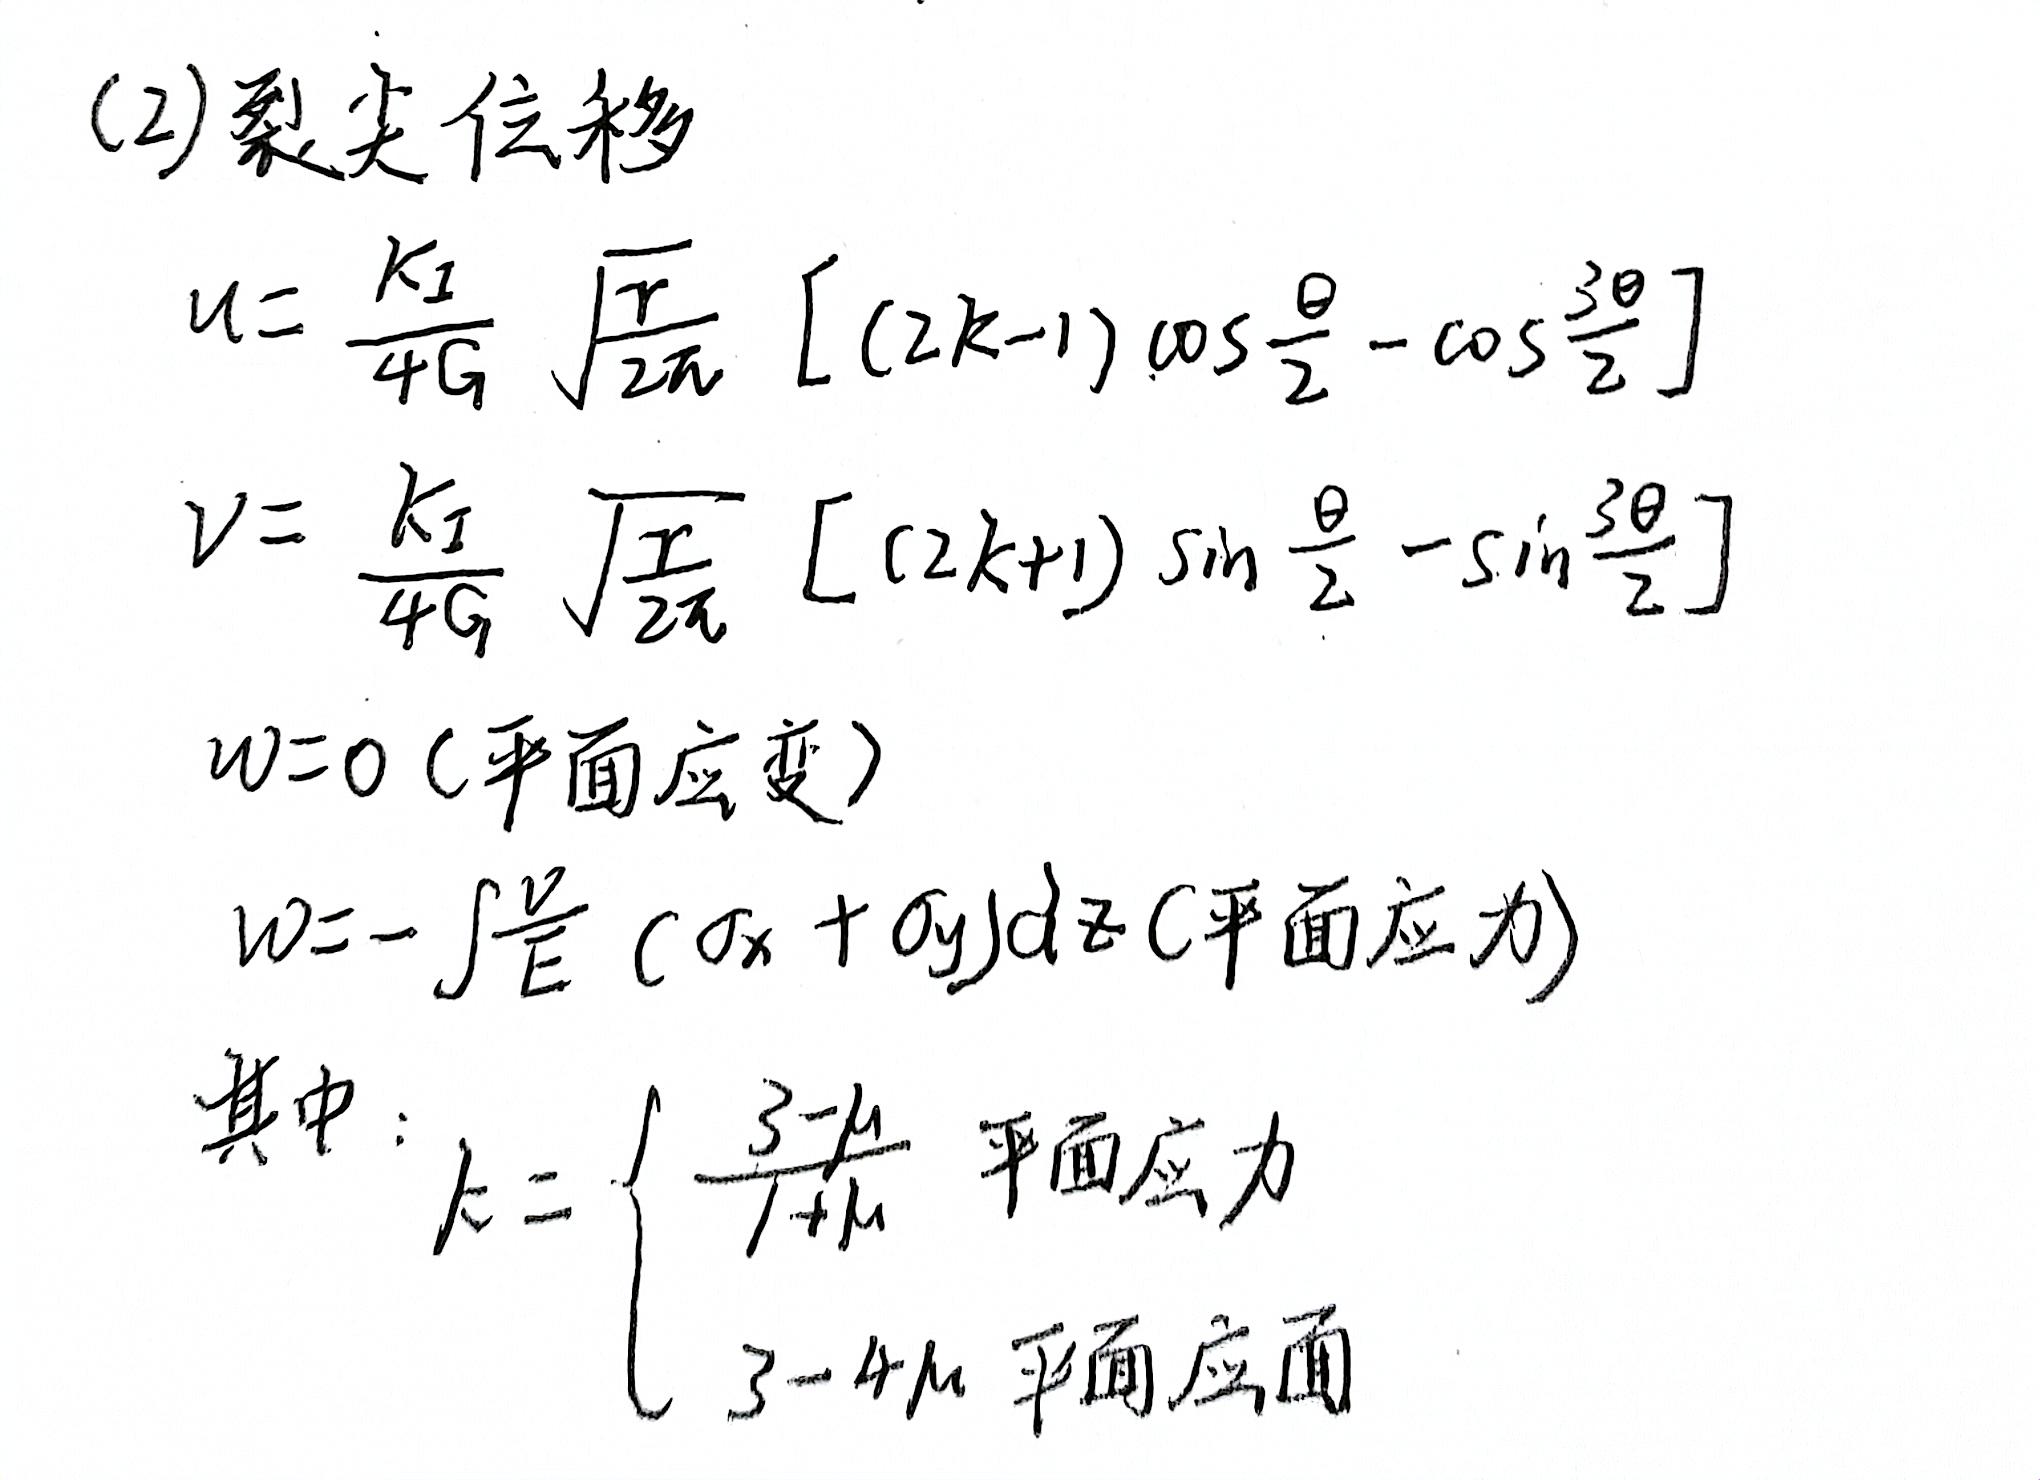 (2) 裂尖位移
u = \frac{K_I}{4G} \sqrt{\frac{r}{2\pi}} [(2k-1) cos\frac{θ}{2} - cos\frac{3θ}{2}]
v = \frac{K_I}{4G} \sqrt{\frac{r}{2\pi}} [(2k+1) sin\frac{θ}{2} - sin\frac{3θ}{2}]
w=0 (平面应变)
w=-∫\frac{ν}{E} (σx + σy)dz (平面应力)
其中: k = { \frac{3-μ}{1+μ} 平面应力
3-4μ 平面应面